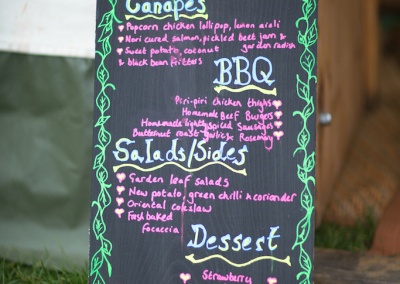 Canapes
Popcorn chicken lollipop, lemon aioli
Nori cured salmon, pickled beet jam &
garden radish
Sweet potato, coconut
& black bean fritters
BBQ
Piri-piri chicken thighs
Homemade Beef Burgers
Homemade lightly spiced Sausages
Butternut roast garlic & Rosemary
Salads/Sides
Garden leaf salads
New potato, green chilli & coriander
Oriental coleslaw
Fresh baked
focaccia
Dessert
Strawberry